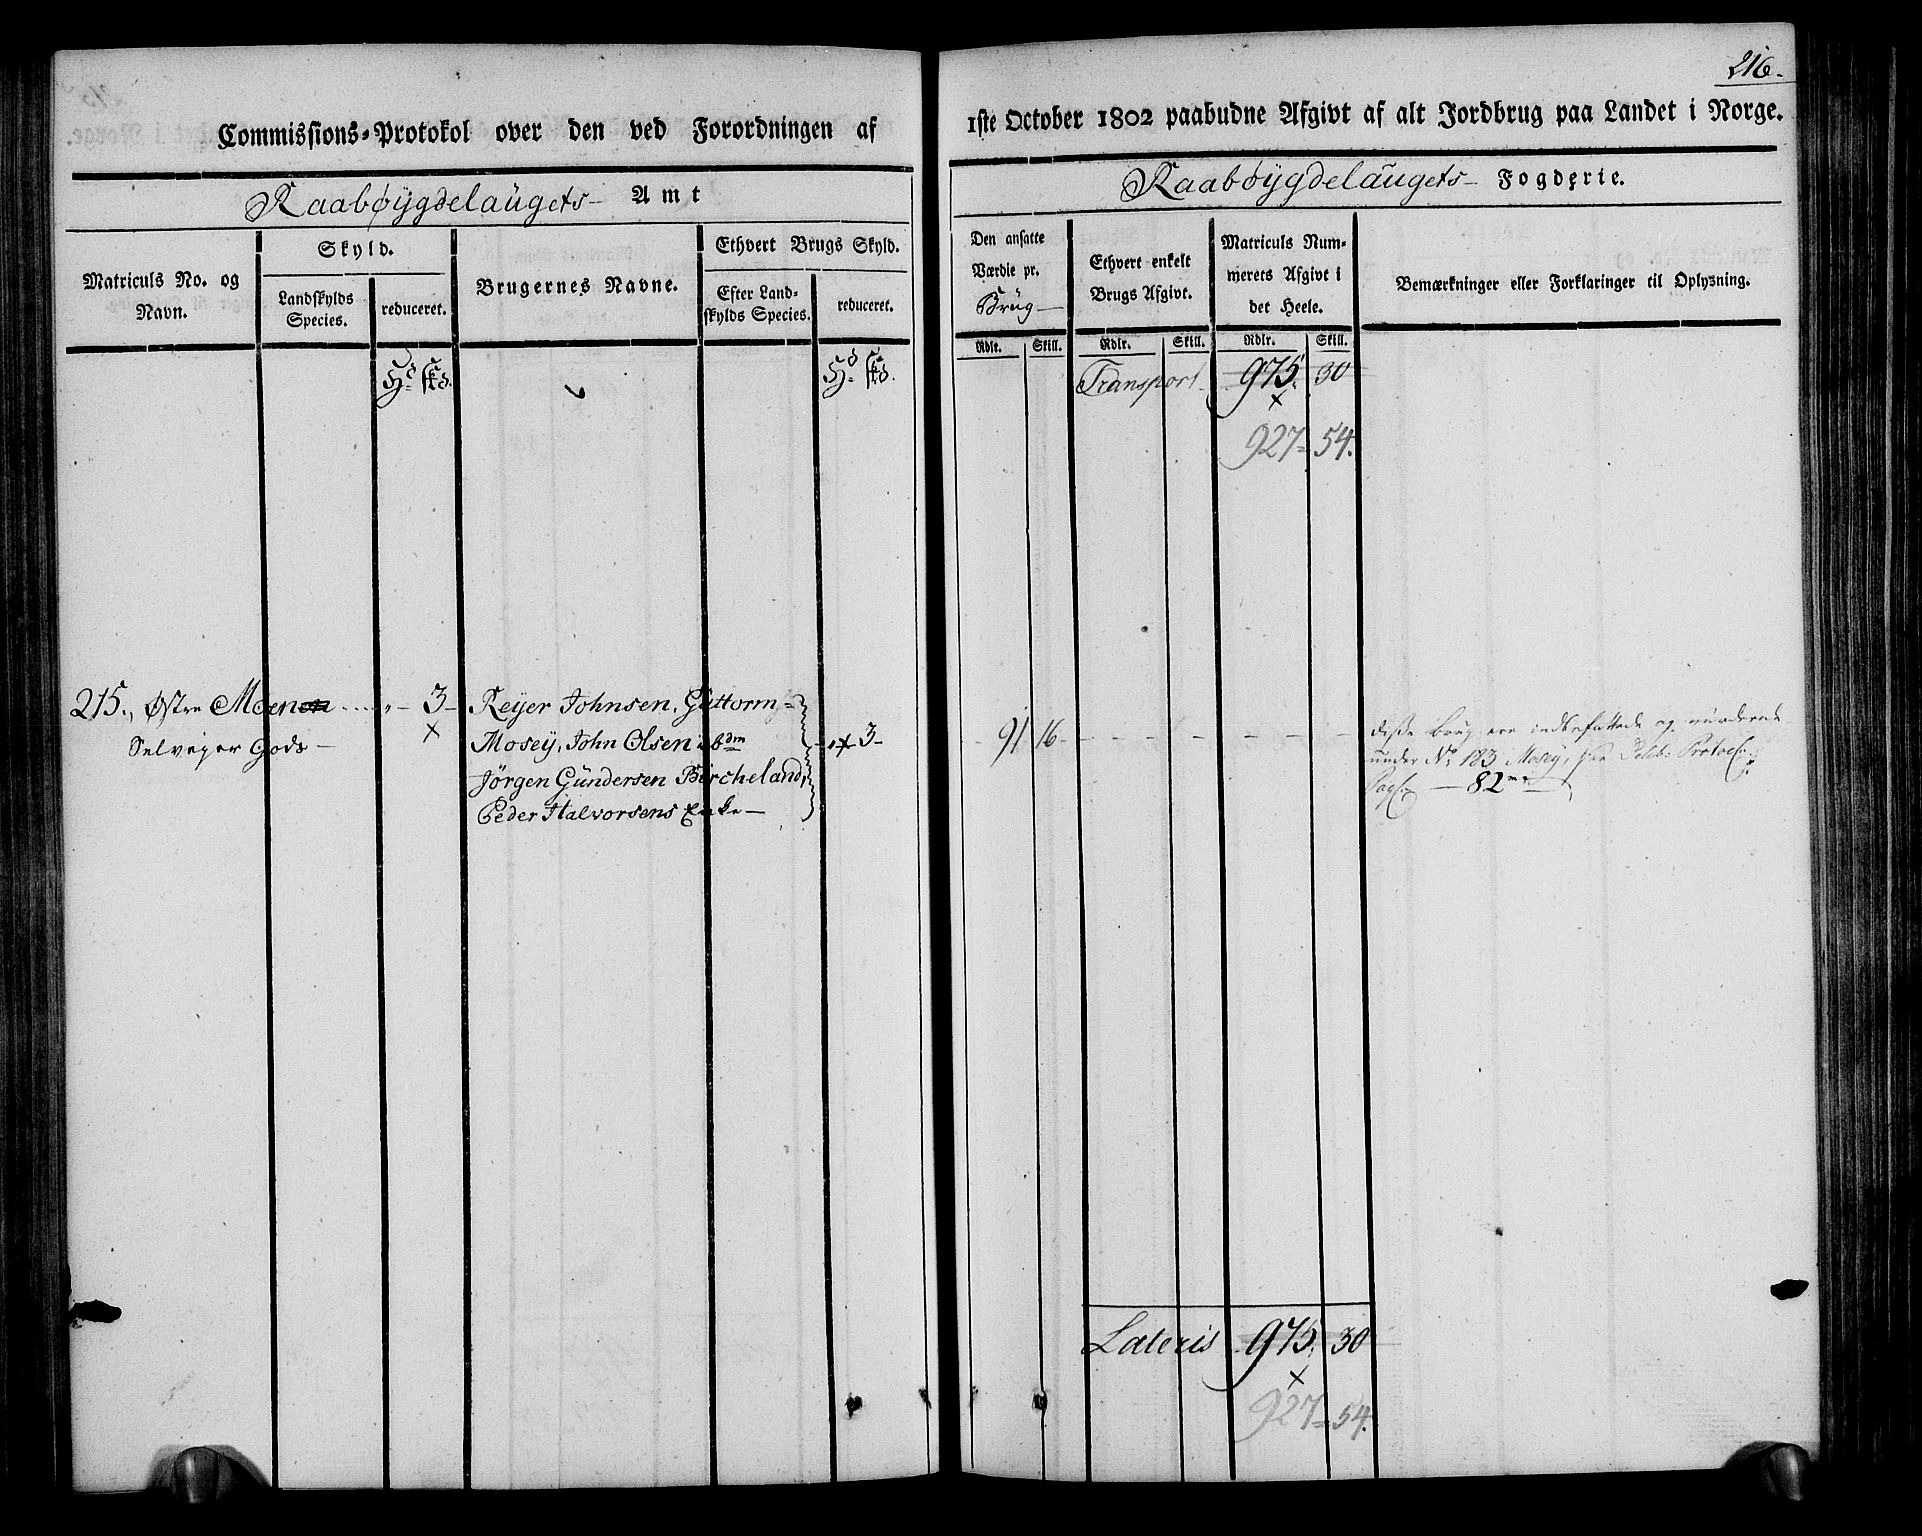 216.
Commissions=Protokol over den ved Forordningen af
1ste October 1802 paabudne Afgivt af alt Jordbrug paa Landet i Norge.
Raabøygdelaugets Amt
Raabøygdelaugets Fogderie.
Matriculs No. og
Navn.
Skyld.
Landskylds
Species.
reduceret.
Brugernes Navne.
Ethvert Brugs Skyld.
Efter Land-
skylds Species.
reduceret.
Den ansatte
Værdie pr.
Brug
Ethvert enkelt
Brugs Afgivt.
Matriculs Num-
merets Afgivt i
det Heele.
Bemærkninger eller Forklaringer til Oplysning.
Rdlr. Skill. Rdlr. Skill. Rdlr. Skill.
Hd. skd.
Hd. skd.
Transport 975. 30
x
927= 54.
215., Østre Moen " - 3 -
x
Selveyer Gods -
Reyer Johnsen, Guttorm
Mosey, John Olsen ibdm
Jörgen Gundersen Bircheland,
Peder Halvorsens Enke -
" x 3 -
91 16
disse Brug ere indbefattede og vurderede
under No: 183 Mosey, Protocl:
Pag: - 82
Lateris 975. 30
x
927= 54.